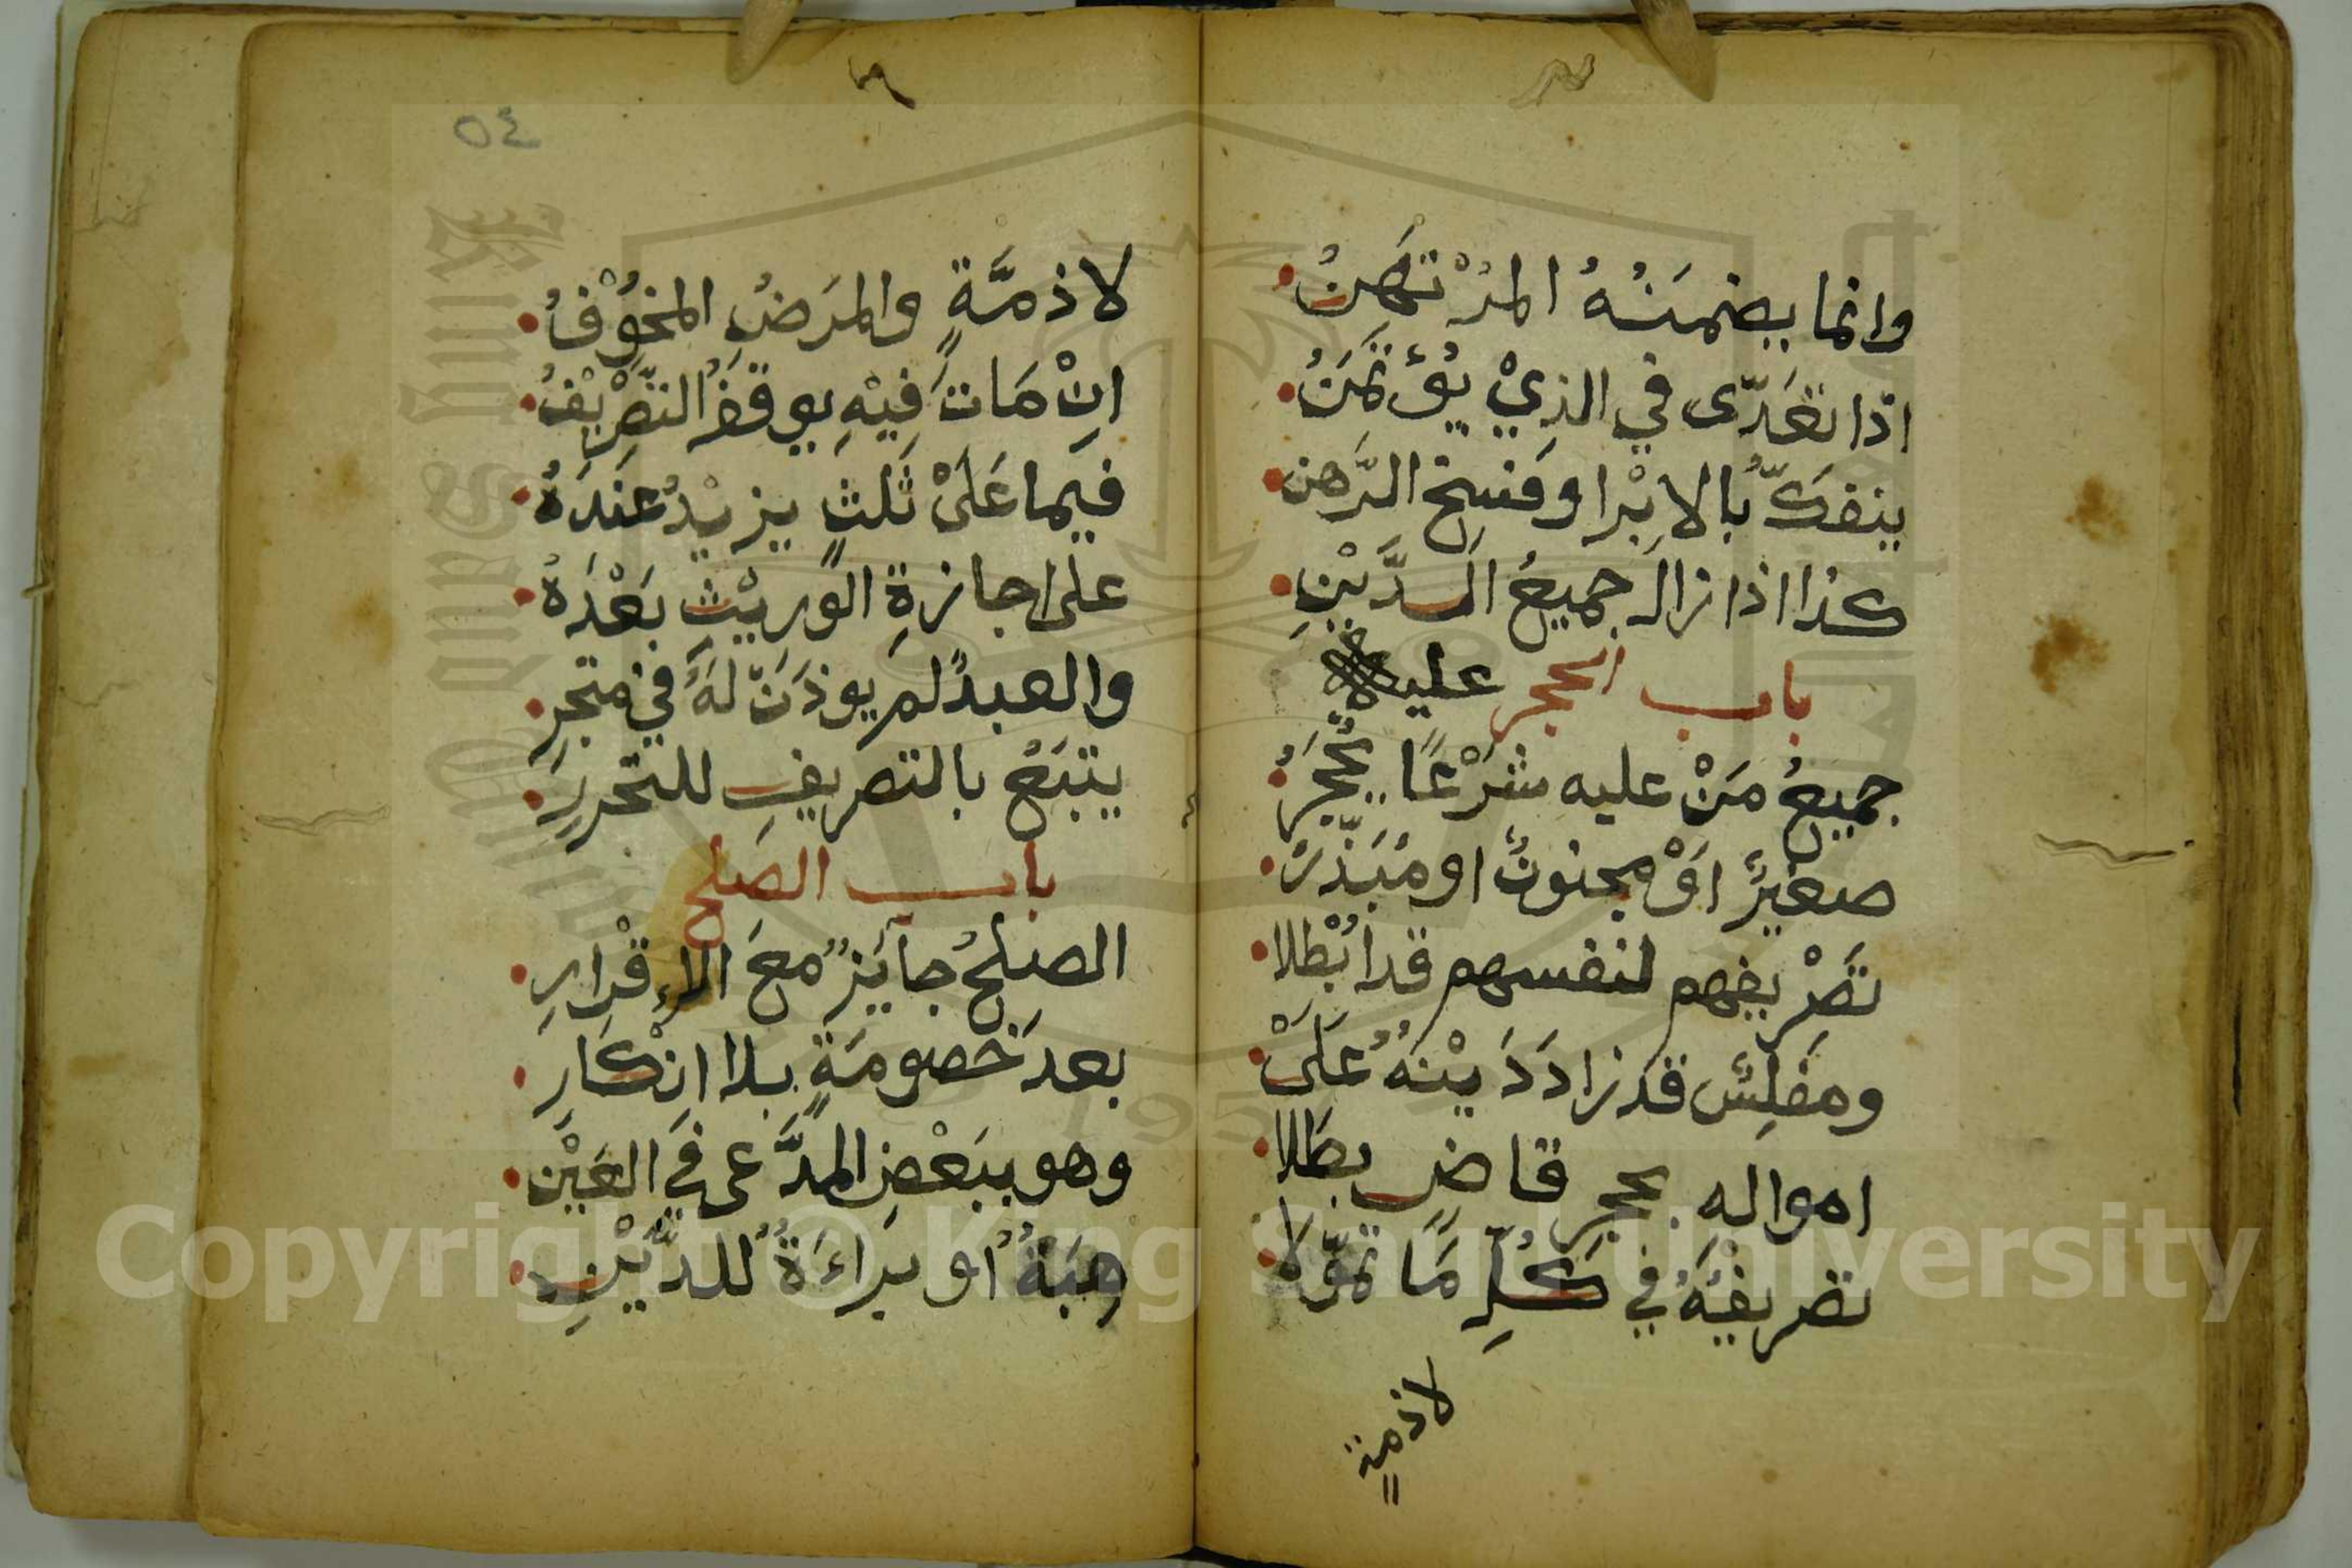 وانما يضمَنُهُ المُرْتَهِنُ
اذا تعَدّى في الذِيْ يُؤْتَمَنُ
ينفكّ بالابْرا وفَسخِ الرَّهن
كذا اذا زال جميعُ الدَّيْنِ
باب الحجر عليه
جميعُ مَنْ عليه شرْعًا يُحْجَرُ
صغيرٌ اوْ مجنونٌ او مُبَذّرُ
تَصْريفهم لنفسهم قد اُبْطلا
ومفلِسٌ قد زادَ دَيْنهُ عَلَىْ
امواله بحجر قاضٍ بطَلا
تصريفُهُ في كُلِّ مَا تموّلا
لا ذمةٍ
٥٤
لا ذمَّةٍ والمرَضُ المخُوْفُ
انْ مَاتَ فيْهِ يوقفُ التَّصْريْفُ
فيما عَلَىْ ثَلثٍ يزيْدُ عندَهُ
على اجازةِ الوَريْثِ بَعْدَهُ
والعبدُ لم يوذَنْ لهُ في متجرِ
يتبَعُ بالتصريفِ للتحررِ
باب الصَلح
الصلحُ جايزٌ معَ الاِقْرارِ
بعدَ خَصومَةٍ بلا انْكَارِ
وهو ببَعْضِ المدَّعى في العَيْنِ
هِبَةٌ او بَراءَةٌ للدَّيْنِ
Copyright © King Saud University